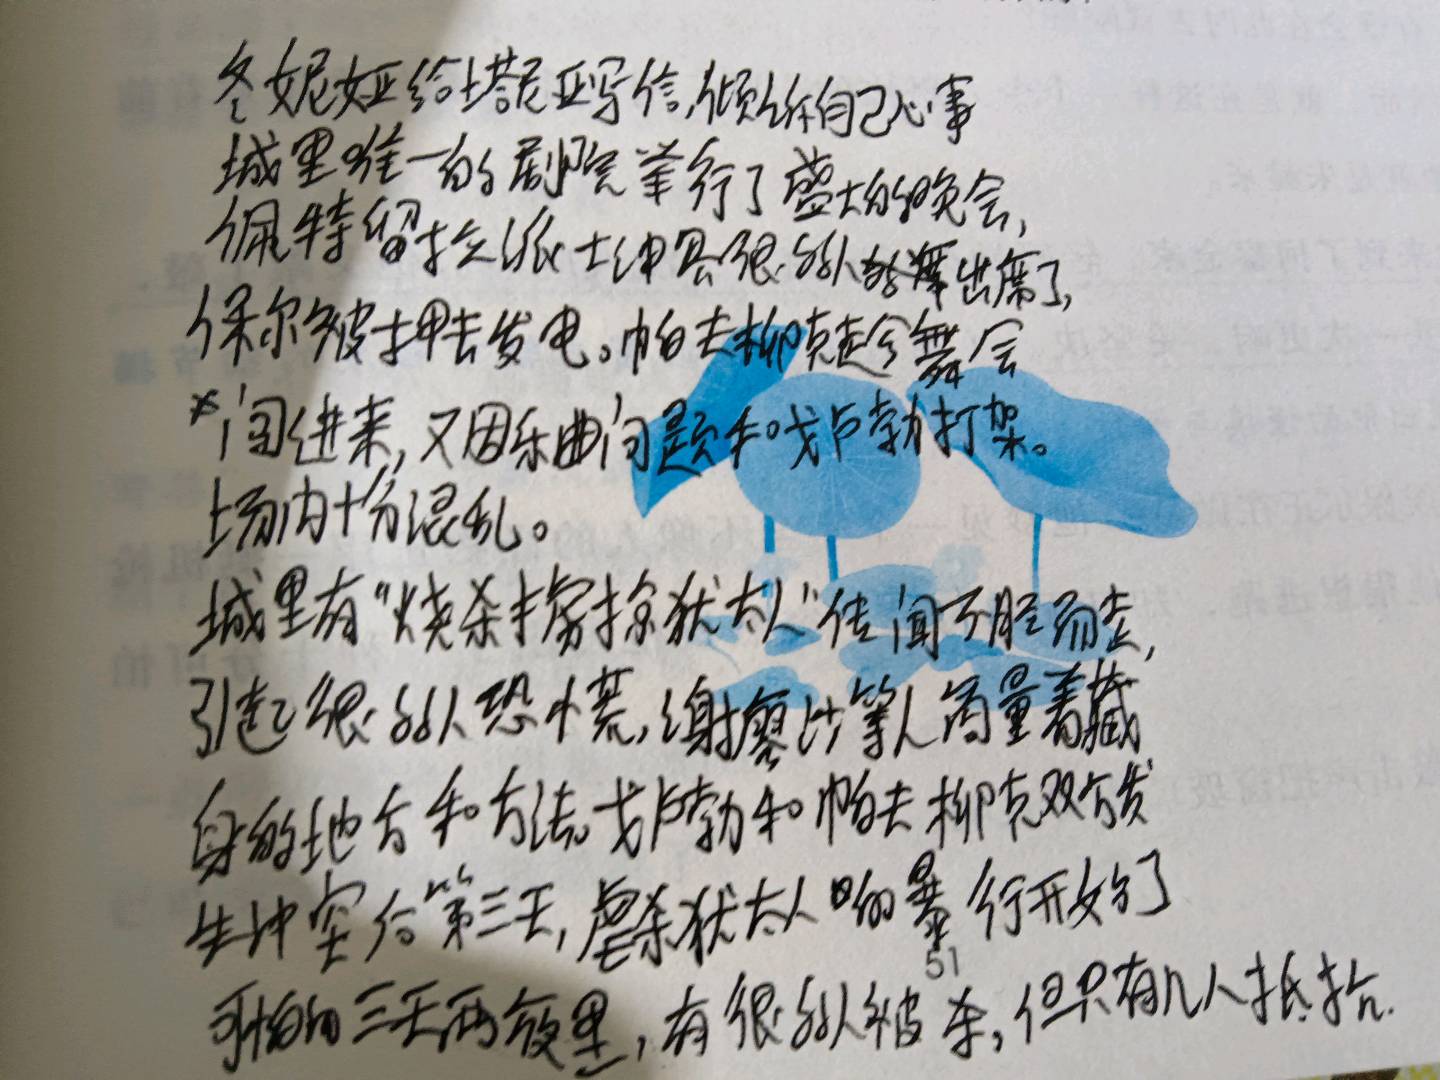 冬妮娅给塔尼亚写信，倾诉自己心事
城里唯一的剧院举行了盛大的晚会，
佩特留拉派士绅名很多人都出席了，
保尔被押去发电。帕夫柳克趁今舞会
闯进来，又因乐曲问题和戈卢勃打架。
场内十分混乱。
城里有“烧杀掳掠犹太人”传闻不胫而走，
引起很多人恐慌，谢廖沙等人商量着藏
身的地方和方法。戈卢勃和帕夫柳克双方发
生冲突后第三天，虐杀犹太人的暴行开始了
51
可怕的三天两夜里，有很多人被杀，但只有几人抵抗.